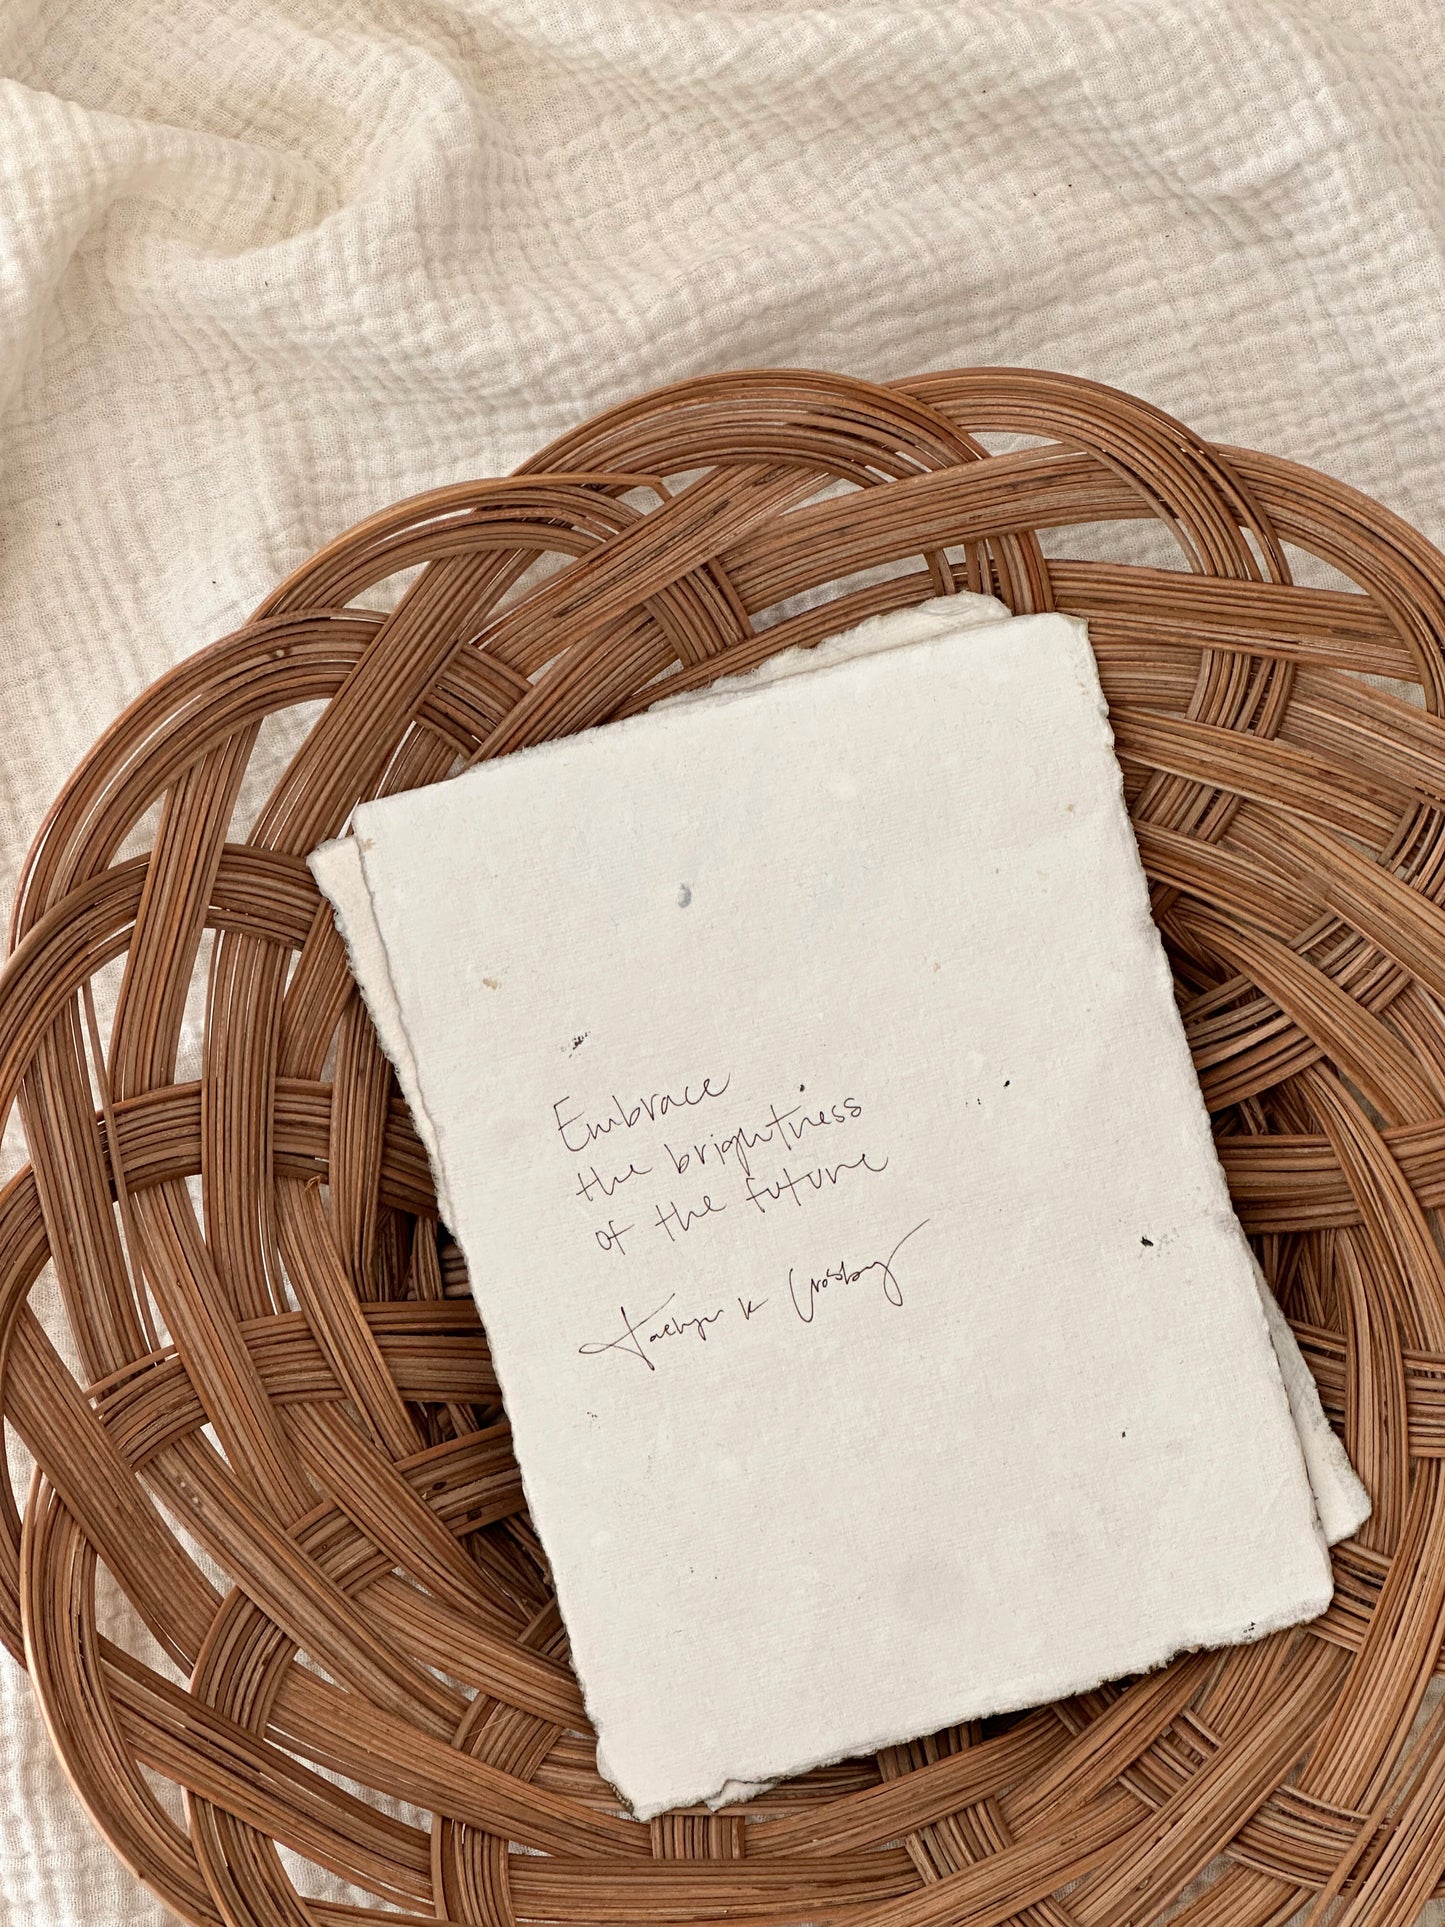 Embrace
the brightness
of the future
Jaclyn K Crosby